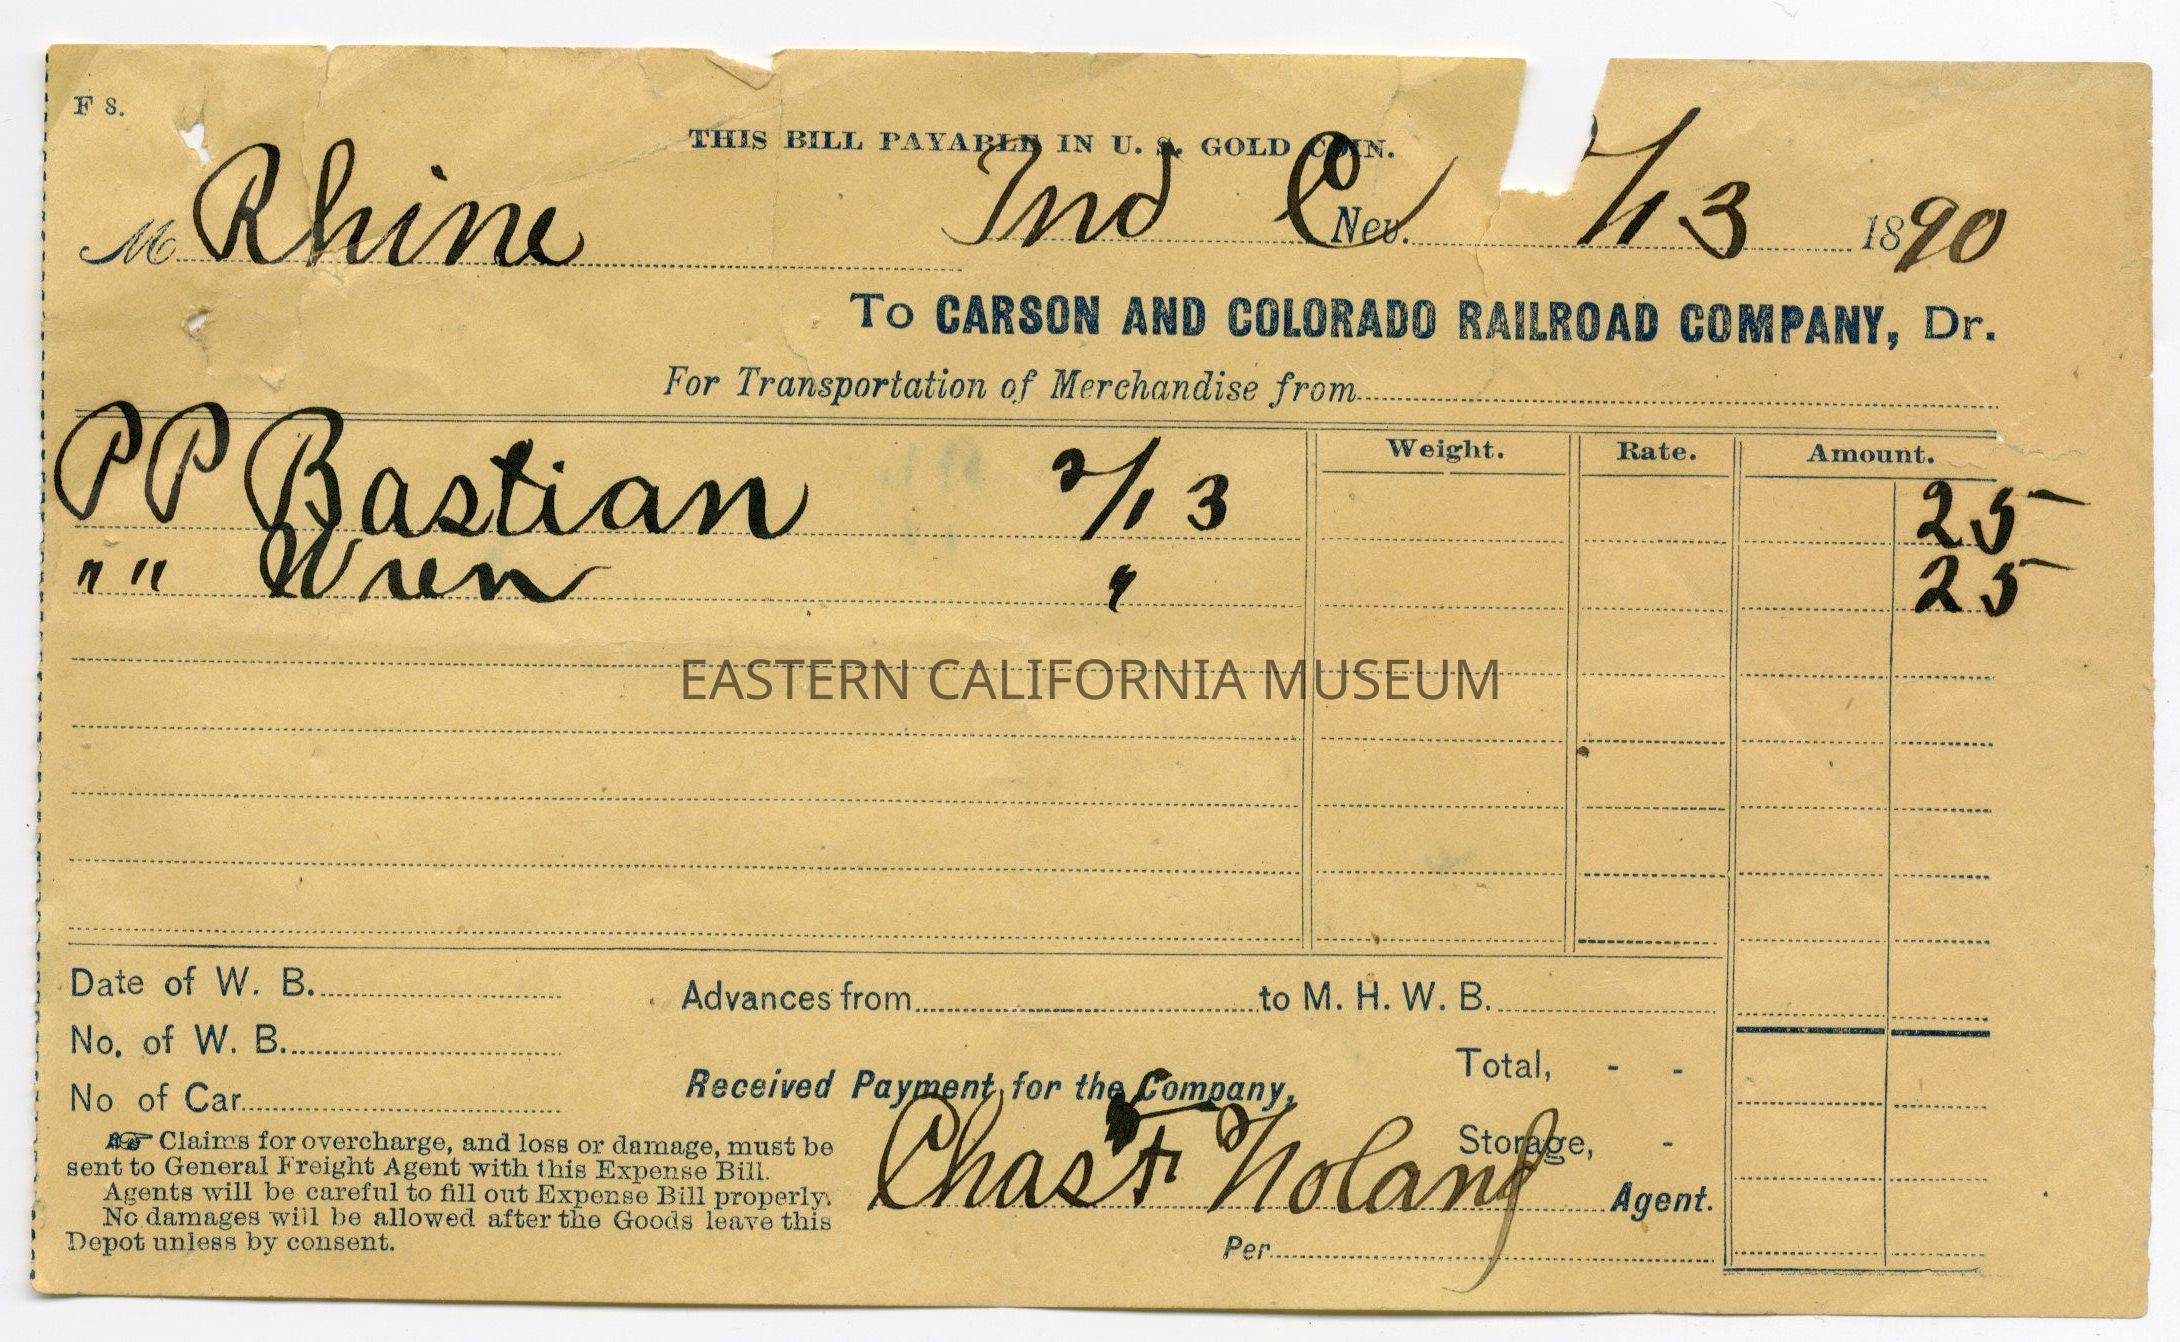 F 8.
THIS BILL PAYABLE IN U. S. GOLD COIN.
M Rhine Ind C Nev. 2/13 1890
To CARSON AND COLORADO RAILROAD COMPANY, Dr.
For Transportation of Merchandise from
Weight. Rate. Amount.
PP Bastian 2/13 25
" " Wren " 25
EASTERN CALIFORNIA MUSEUM
Date of W. B.
Advances from to M. H. W. B.
No. of W. B.
Total, - -
Received Payment for the Company,
No of Car
Storage, -
☞ Claims for overcharge, and loss or damage, must be
sent to General Freight Agent with this Expense Bill.
Agents will be careful to fill out Expense Bill properly.
No damages will be allowed after the Goods leave this
Depot unless by consent.
Chas F Noland Agent.
Per